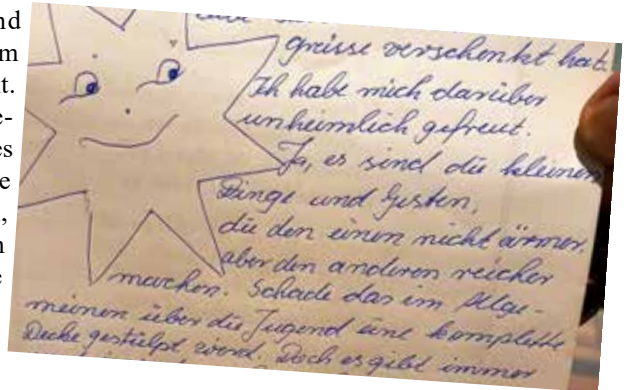 nd
m
t.
e-
es
e
,
n
e
grüsse verschenkt hat.
Ich habe mich darüber
unheimlich gefreut.
Ja, es sind die kleinen
Dinge und Gesten,
die den einen nicht ärmer,
aber den anderen reicher
machen. Schade das im Allge-
meinen über die Jugend eine komplette
Decke gestülpt wird. Doch es gibt immer